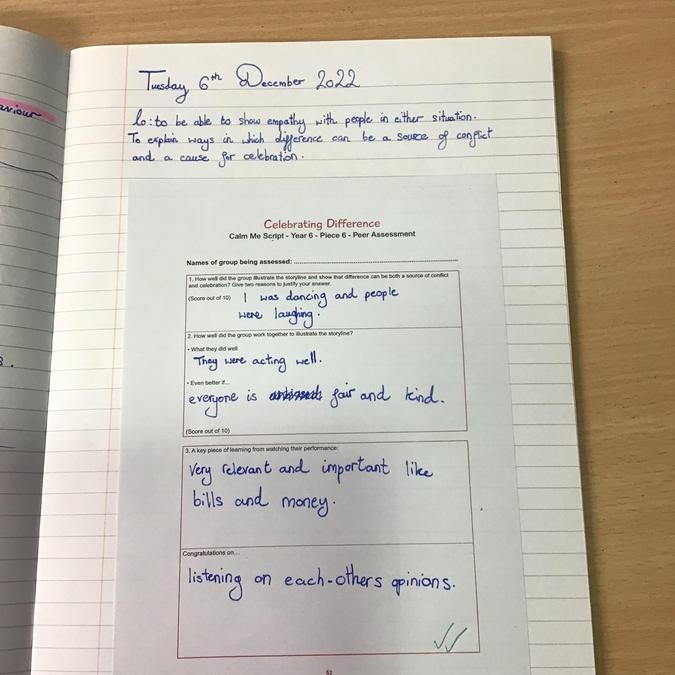 aviour
Tuesday 6th December 2022
lo: to be able to show empathy with people in either situation.
To explain ways in which difference can be a source of conflict
and a cause for celebration.
Celebrating Difference
Calm Me Script - Year 6 - Piece 6 - Peer Assessment
Names of group being assessed: ........................................................
1. How well did the group illustrate the storyline and show that difference can be both a source of conflict
and celebration? Give two reasons to justify your answer.
(Score out of 10) I was dancing and people
were laughing.
2. How well did the group work together to illustrate the storyline?
• What they did well
They were acting well.
• Even better if...
everyone is fair and kind.
(Score out of 10)
3. A key piece of learning from watching their performance:
Very relevant and important like
bills and money.
Congratulations on...
listening on each-others opinions.
52